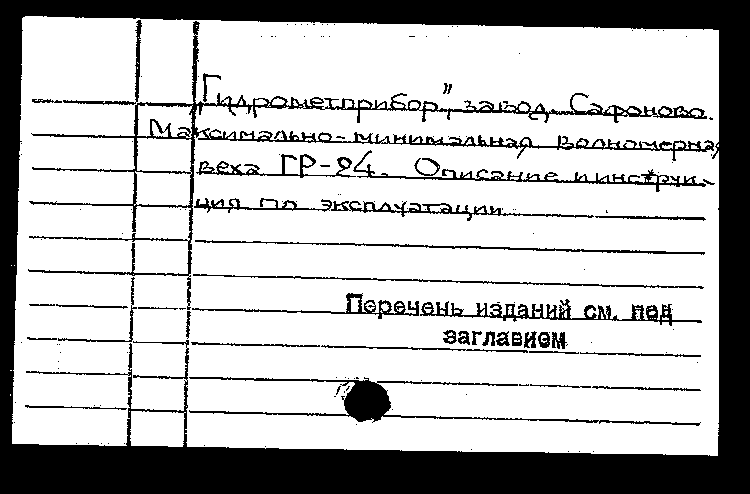 „Гидрометприбор", завод. Сафоново.
Максимально-минимальная волномерная
веха ГР-24. Описание и инструк-
ция по эксплуатации
Перечень изданий см. под
заглавием